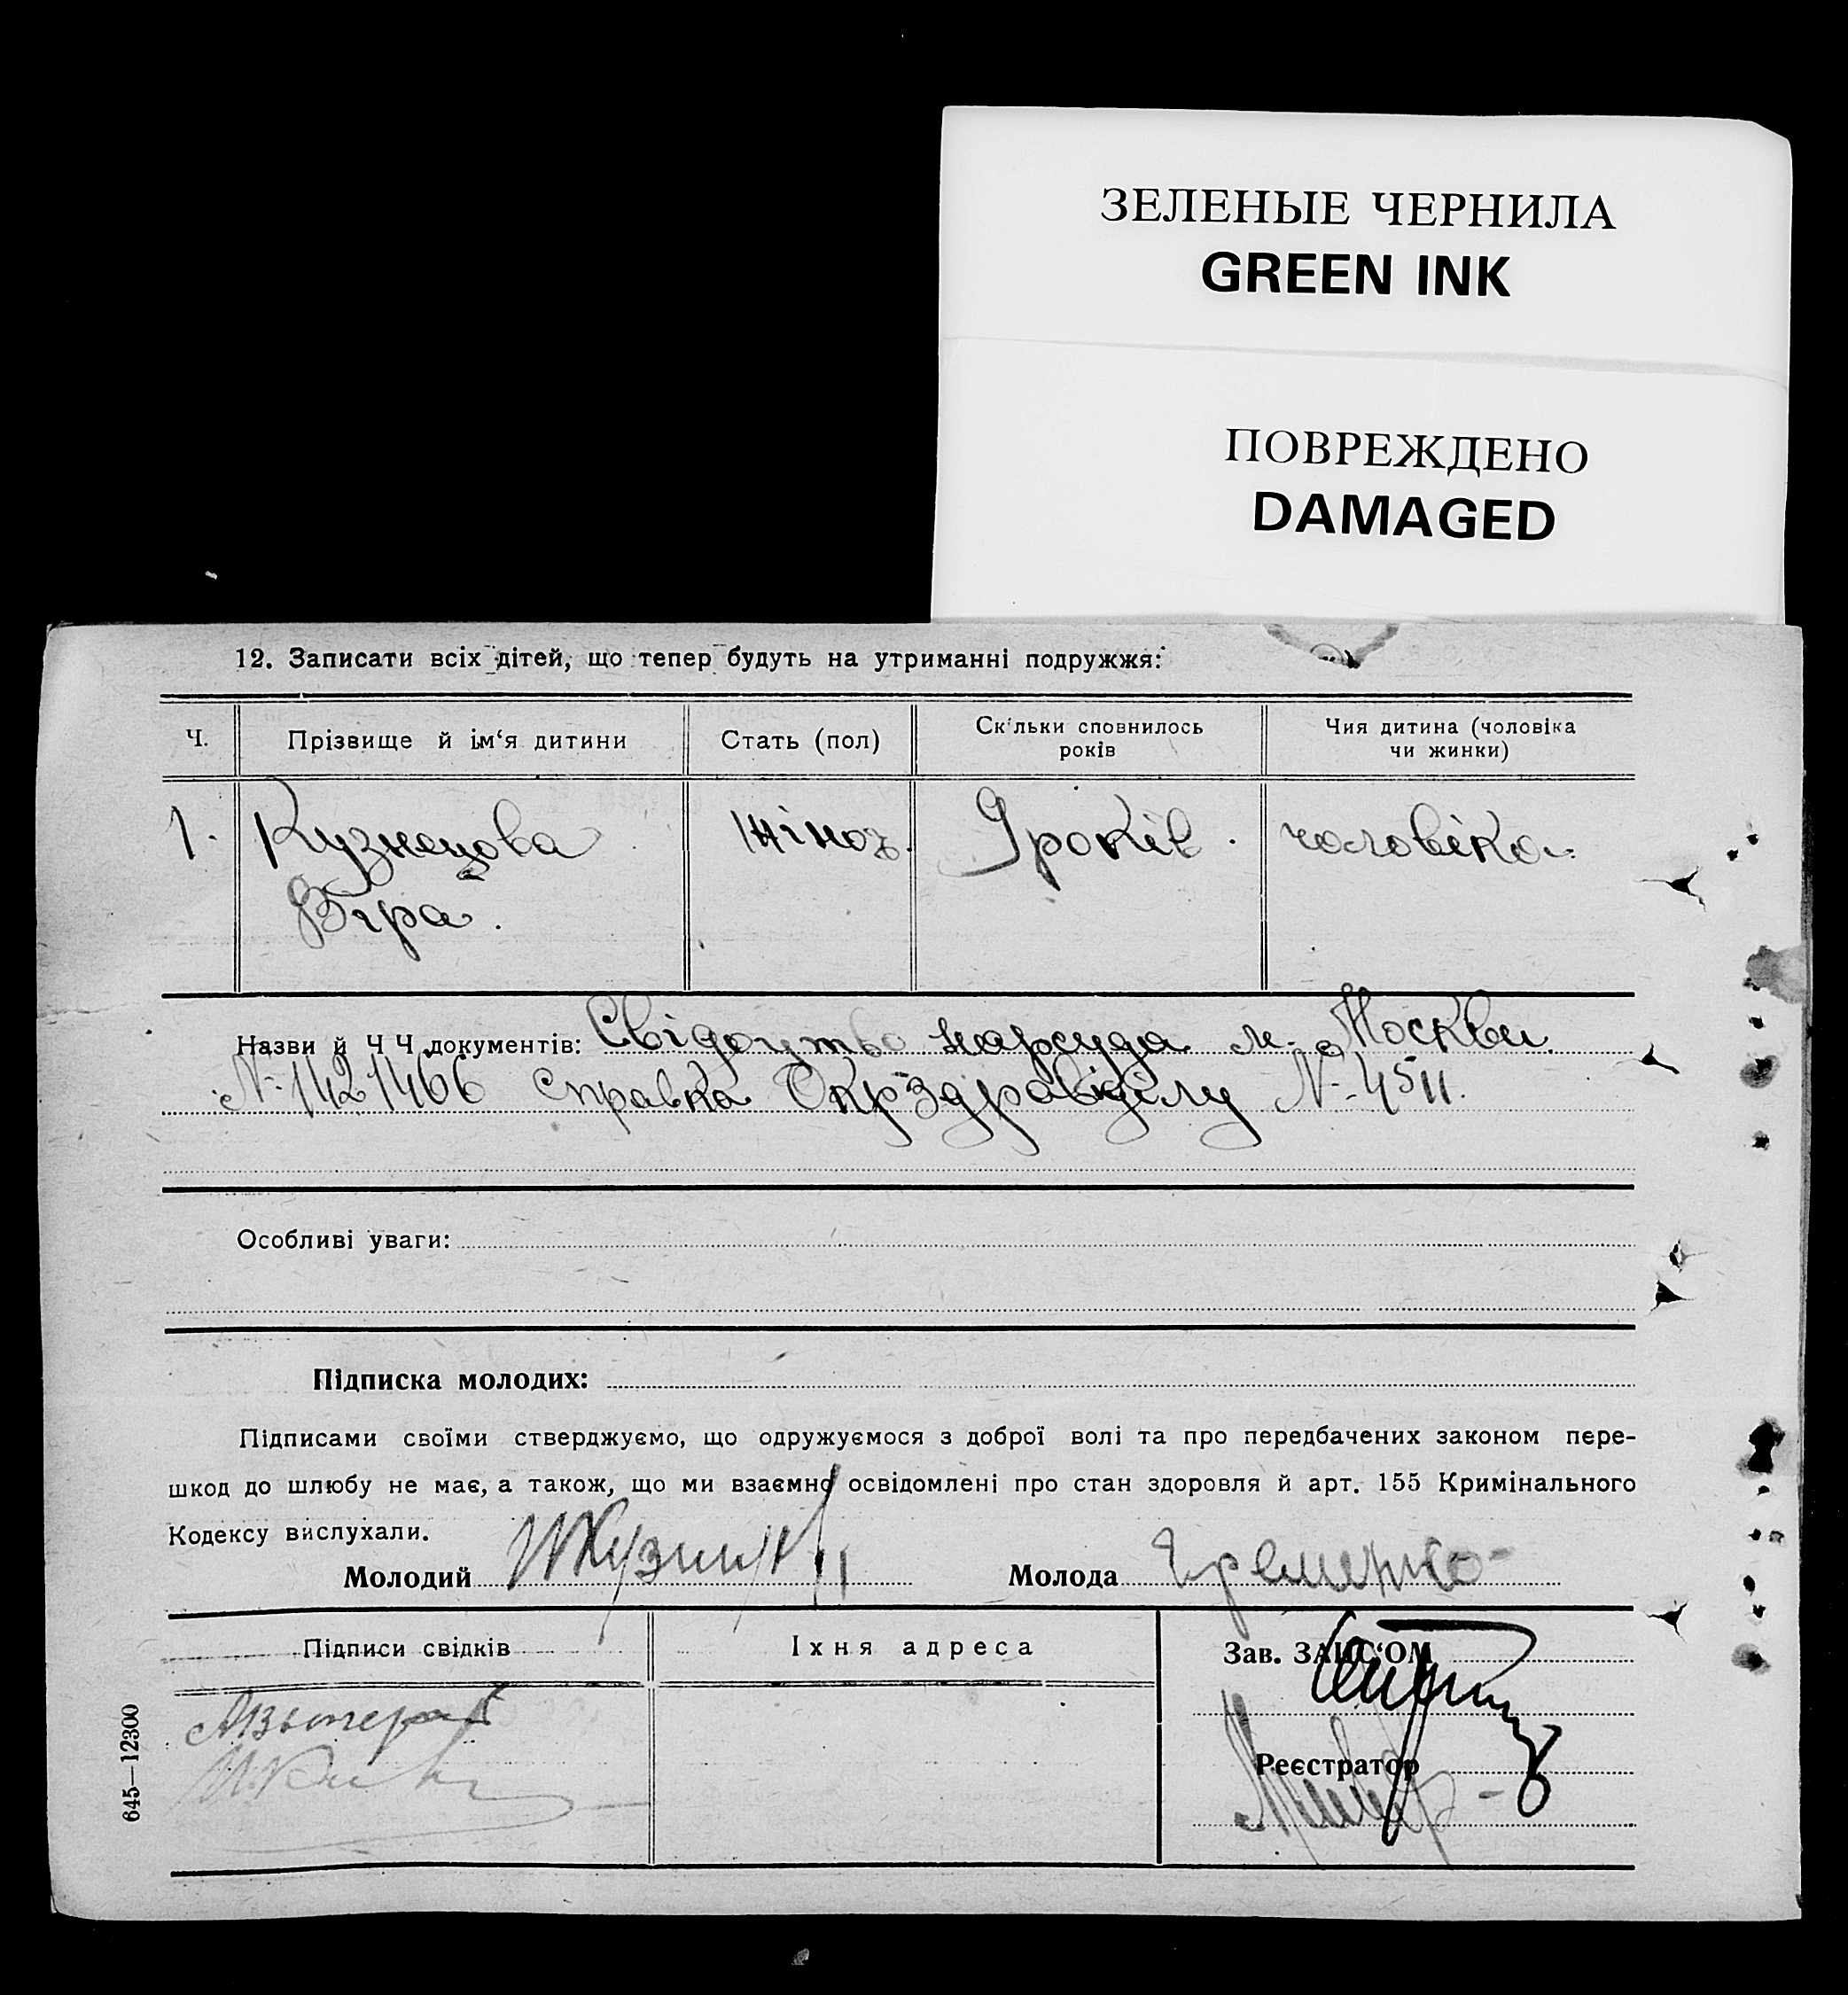 ЗЕЛЕНЫЕ ЧЕРНИЛА
GREEN INK
ПОВРЕЖДЕНО
DAMAGED
12. Записати всіх дітей, що тепер будуть на утриманні подружжя:
Ч. Прізвище й ім‘я дитини Стать (пол) Скільки сповнилось років Чия дитина (чоловіка чи жинки)
1. Кузнецова Жіноч. 9 років. чоловіка.
Віра.
Назви й Ч Ч документів: Свідоцтво нарсуда м. Москви.
№ 1421466 справка Окрздороввідділу № 4511.
Особливі уваги:
Підписка молодих:
Підписами своїми стверджуємо, що одружуємося з доброї волі та про передбачених законом пере-
шкод до шлюбу не має, а також, що ми взаємно освідомлені про стан здоровля й арт. 155 Кримінального
Кодексу вислухали.
Молодий Молода Еременко
Підписи свідків Їхня адреса Зав. ЗАГС‘ОМ
Реєстратор
645—12300